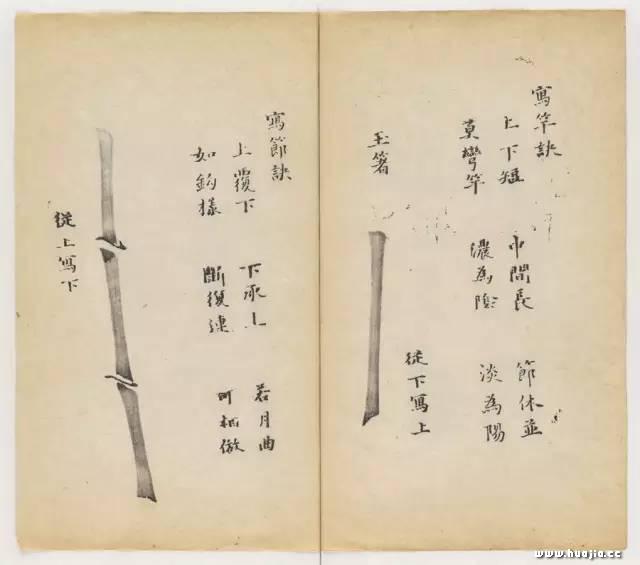 寫竿訣
上下短 中間長 節休並
莫彎竿 濃為陰 淡為陽
玉箸
從下寫上
寫節訣
上覆下 下承上 若月曲
如鈎樣 斷復連 可 倣
從上寫下
www.huajia.cc